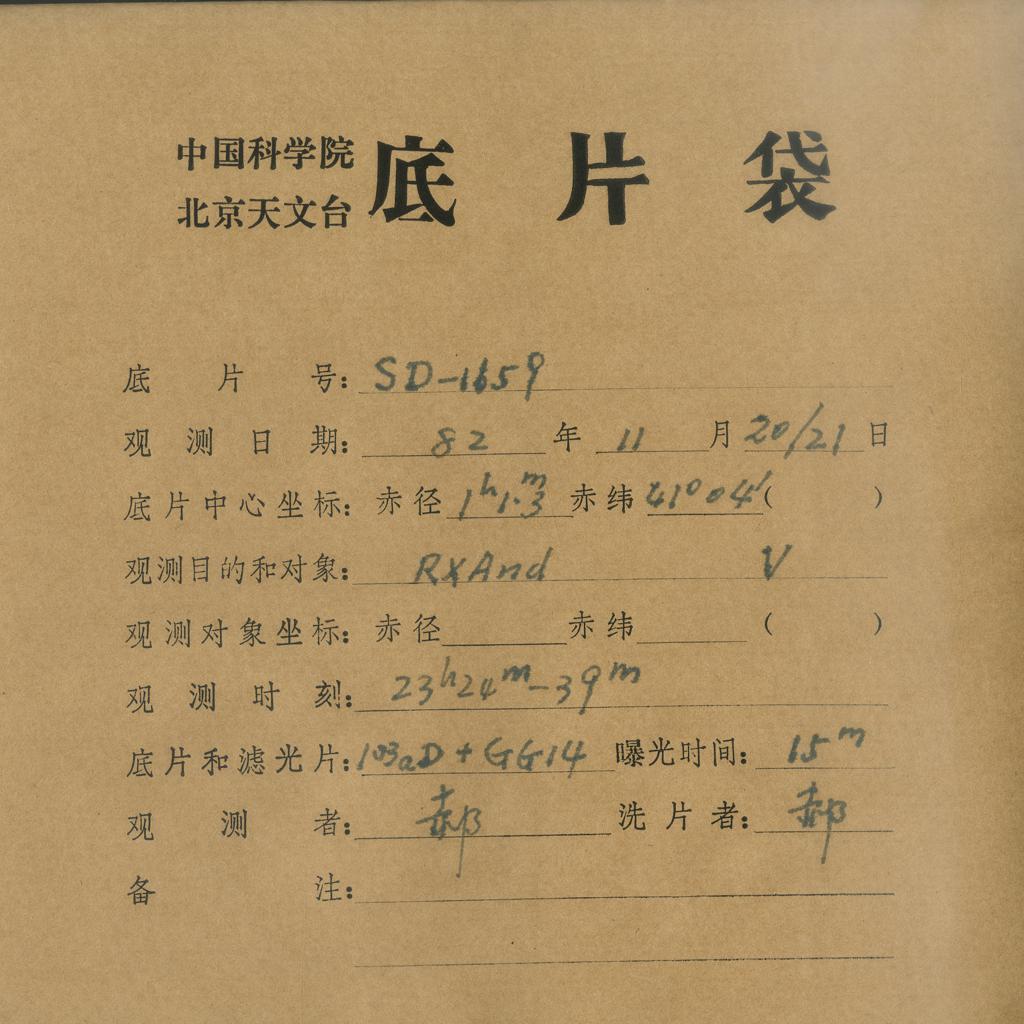 中国科学院
北京天文台
底片袋
底片号: SD-1659
观测日期: 82 年 11 月 20/21 日
底片中心坐标: 赤径 1h1.3m 赤纬 41°04′ ( )
观测目的和对象: RXAnd V
观测对象坐标: 赤径 赤纬 ( )
观测时刻: 23h24m-39m
底片和滤光片: 103aD+GG14 曝光时间: 15m
观测者: 郝 洗片者: 郝
备注: